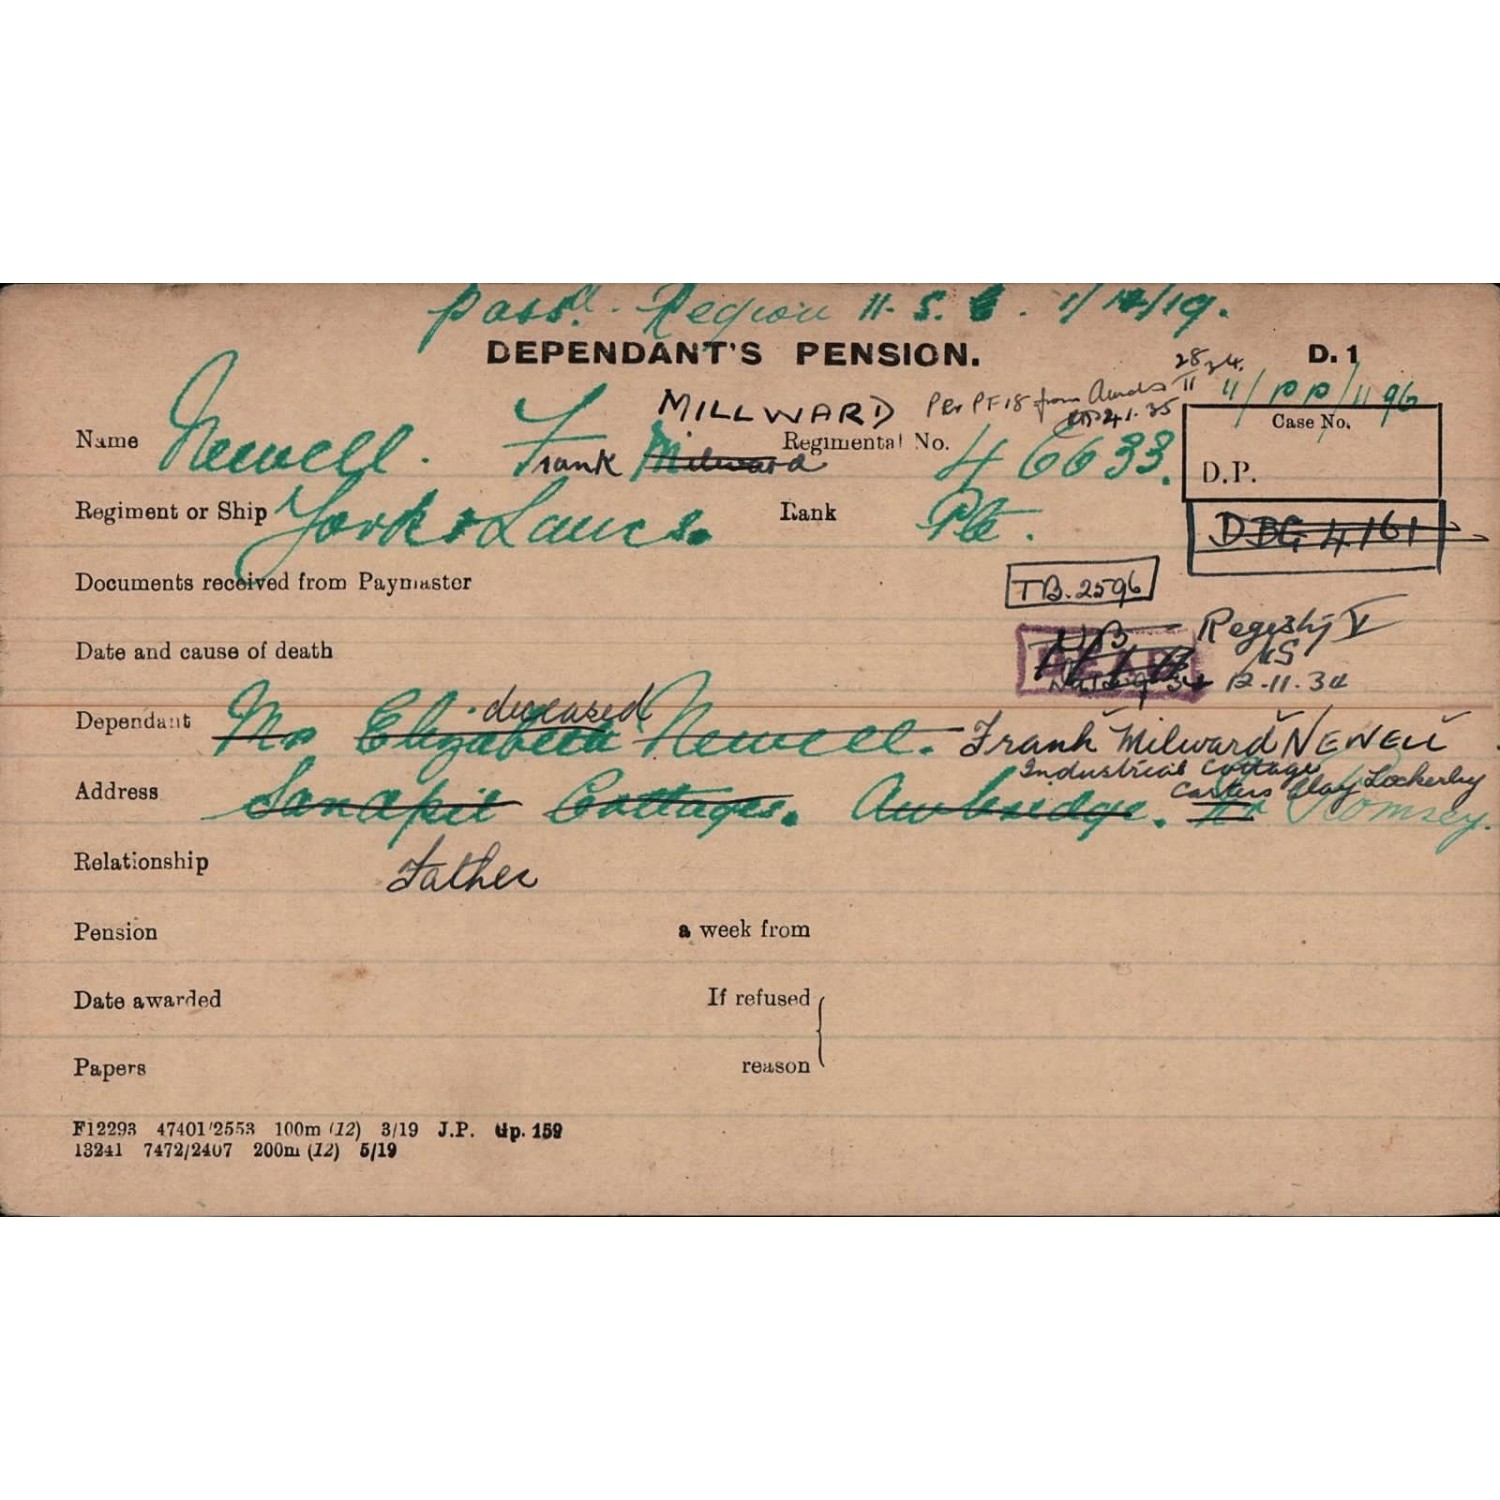 Region H.S. 1/12/19.
DEPENDANT'S PENSION. D. 1
28
MILLWARD Per PF18 from Awards II 11/DP/1196
24.1.35
Name Newell. Frank Milward Regimental No. 46633. Case No.
D.P.
Regiment or Ship York & Lancs. Rank Pte. DBG 4161
Documents received from Paymaster TB.2596
NB Registry V
MS
Date and cause of death 12.11.34
deceased
Dependant Mrs Elizabeth Newell. Frank Milward NEWELL
Industrial Cottage
Carters Clay Lockerly
Address Sandpit Cottages. Awbridge. Nr Romsey.
Relationship Father
Pension a week from
Date awarded If refused
Papers reason
F12293 47401/2553 100m (12) 3/19 J.P. Gp. 159
13241 7472/2407 200m (12) 5/19